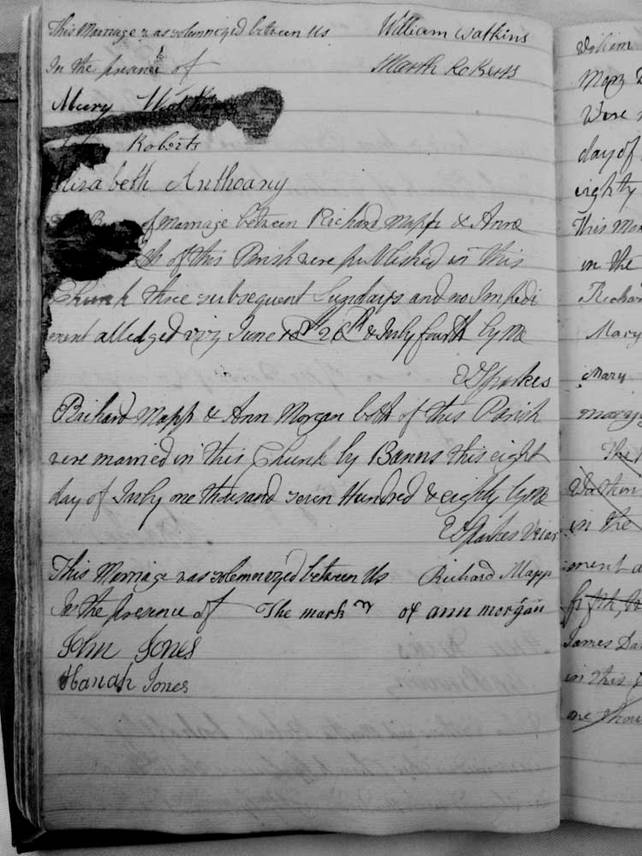 This Marriage was solemnized between Us William Watkins
In the presence of Marth Roberts
Mary
Roberts
Elizabeth Anthoany
of Marriage between Richard Mapp & Ann
of this Parish were published in this
Church three subsequent Sundays and no Impedi
ment alledged viz June 18th 26th & July fourth by Me
Richard Mapp & Ann Morgan both of this Parish
were married in this Church by Banns this eight
day of July one thousand seven Hundred & eighty by Me
Vicar
This Marriage was solemnized between Us Richard Mapp
In the presence of The mark of ann morgan
John Jones
Hanah Jones
William
Mary
Were
day of
eighty
This Mar
in the
Richar
Mary
Mary
This
in the
ment a
fifth
James Da
in this
one thou